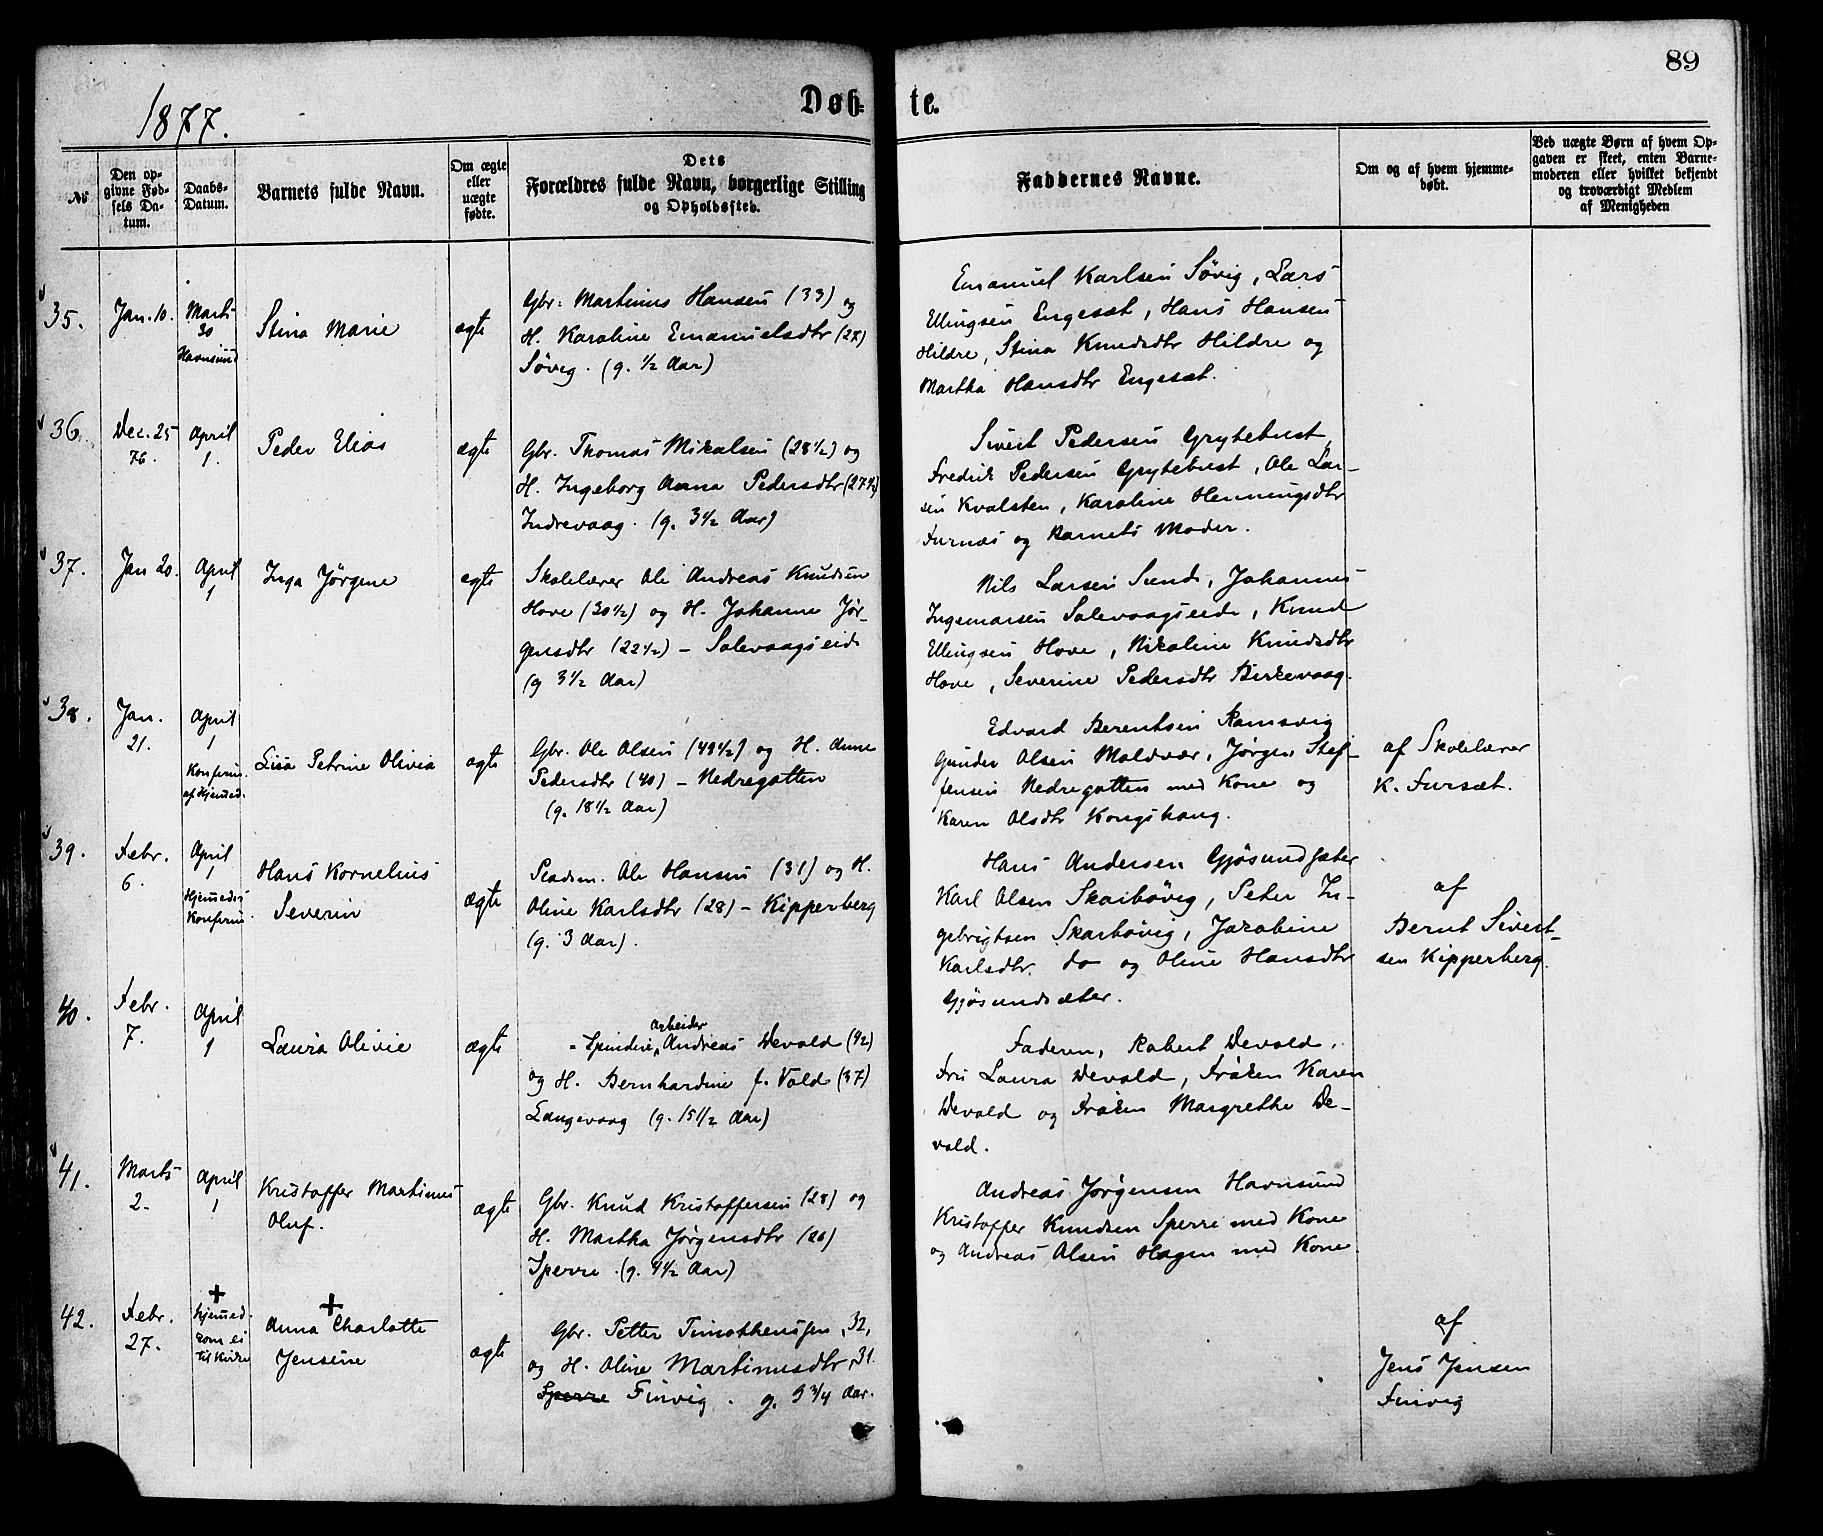 89
1877.
Døb-
te.
No
Den op-
givne Fød-
sels Da-
tum.
Daabs-
Datum.
Barnets fulde Navn.
Om ægte
eller
uægte
fødte.
Dets
Forældres fulde Navn, borgerlige Stilling
og Opholdssted.
Faddernes Navne.
Om og af hvem hjemme-
døbt.
Ved uægte Børn af hvem Op-
gaven er skeet, enten Barne-
moderen eller hvilket bekjendt
og troværdigt Medlem
af Menigheden
35.
Jan. 10.
Marts
30
Havnsund
Stina Marie
ægte
Gbr. Martinus Hansen (33) og
H. Karoline Emanuelsdtr (27)
Søvig. (g. 1/2 Aar)
Emanuel Karlsen Søvig, Lars
Ellingsen Engesæt, Hans Hansen
Hildre, Stina Knudsdtr Hildre og
Martha Hansdtr Engesæt.
36.
Dec. 25
76.
April
1.
Peder Elias
ægte
Gbr. Thomas Mikalsen (28 1/2) og
H. Ingeborg Anna Pedersdtr (27 1/2)
Indrevaag. (g. 3 1/2 Aar)
Sivert Pedersen Grytebust,
Fredrik Pedersen Grytebust, Ole Lar-
sen Kvalsten, Karoline Henningsdtr
Furnæs og Barnets Moder.
37.
Jan 20.
April
1
Inga Jørgine
ægte
Skolelærer Ole Andreas Knudsen
Hove (30 1/2) og H. Johanne Jør-
gensdtr (22 1/2) - Solevaagseide
(g 3 1/2 Aar)
Nils Larsen Sunde, Johannes
Ingemarsen Solevaagseide, Knud
Ellingsen Hove, Nikoline Knudsdtr
Hove, Severine Pedersdtr Birkevaag.
38.
Jan.
21.
April
1
Konfirm.
af Hjemed.
Lisa Petrine Olivia
ægte
Gbr. Ole Olsen (49 1/2) og H. Anne
Pedersdtr (40) - Nedregotten
(g. 18 1/2 Aar)
Edvard Berentsen Ramsvig
Gunder Olsen Moldvær, Jørgen Stef-
fensen Nedregotten med Kone og
Karen Olsdtr Kongshaug.
af Skolelærer
K. Fursæt.
39.
Febr.
6.
April
1
Hjemmeds
Konfirm.
Hans Kornelius
Severin
ægte
Pladsm. Ole Hansen (31) og H.
Oline Karlsdtr (28) - Kipperberg
(g. 3 Aar).
Hans Andersen Gjøsundsæter
Karl Olsen Skarbøvig, Peter In-
gebrigtsen Skarbøvig, Jacobine
Karlsdtr. do og Oline Hansdtr
Gjøsundsæter.
af
Bernt Sivert-
sen Kipperberg.
40.
Febr.
7.
April
1
Laura Olivie
ægte
Arbeider
Spinderi, Andreas Devold (42)
og H. Bernhardine f. Vold (37)
Langevaag (g. 15 1/2 Aar)
Faderen, Robert Devold,
Fru Laura Devold, Frøken Karen
Devold og Frøken Margrethe De-
vold.
41.
Marts
2.
April
1
Kristoffer Martinus
Oluf.
ægte
Gbr. Knud Kristoffersen (28) og
H. Martha Jørgensdtr (26)
Sperre. (g. 4 1/2 Aar)
Andreas Jørgensen Havnsund
Kristoffer Knudsen Sperre med Kone
og Andreas Olsen Hagen med Kone
42.
Febr.
27.
+
Hjemed.
kom ei
til Kirke
+
Anna Charlotte
Jensine
ægte
Gbr. Petter Timotheussen, 32,
og H. Oline Martinusdtr, 31
Sperre Finvig. g. 9 3/4 Aar.
af
Jens Jensen
Finvig